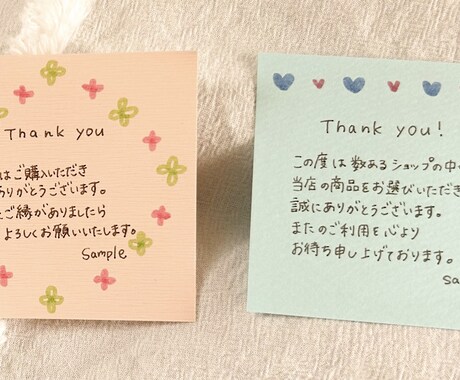 Thank you
はご購入いただき
ありがとうございます。
ご縁がありましたら
よろしくお願いいたします。
Sample
Thank you!
この度は数あるショップの中
当店の商品をお選びいただき
誠にありがとうございます。
またのご利用を心より
お待ち申し上げております。
Sa